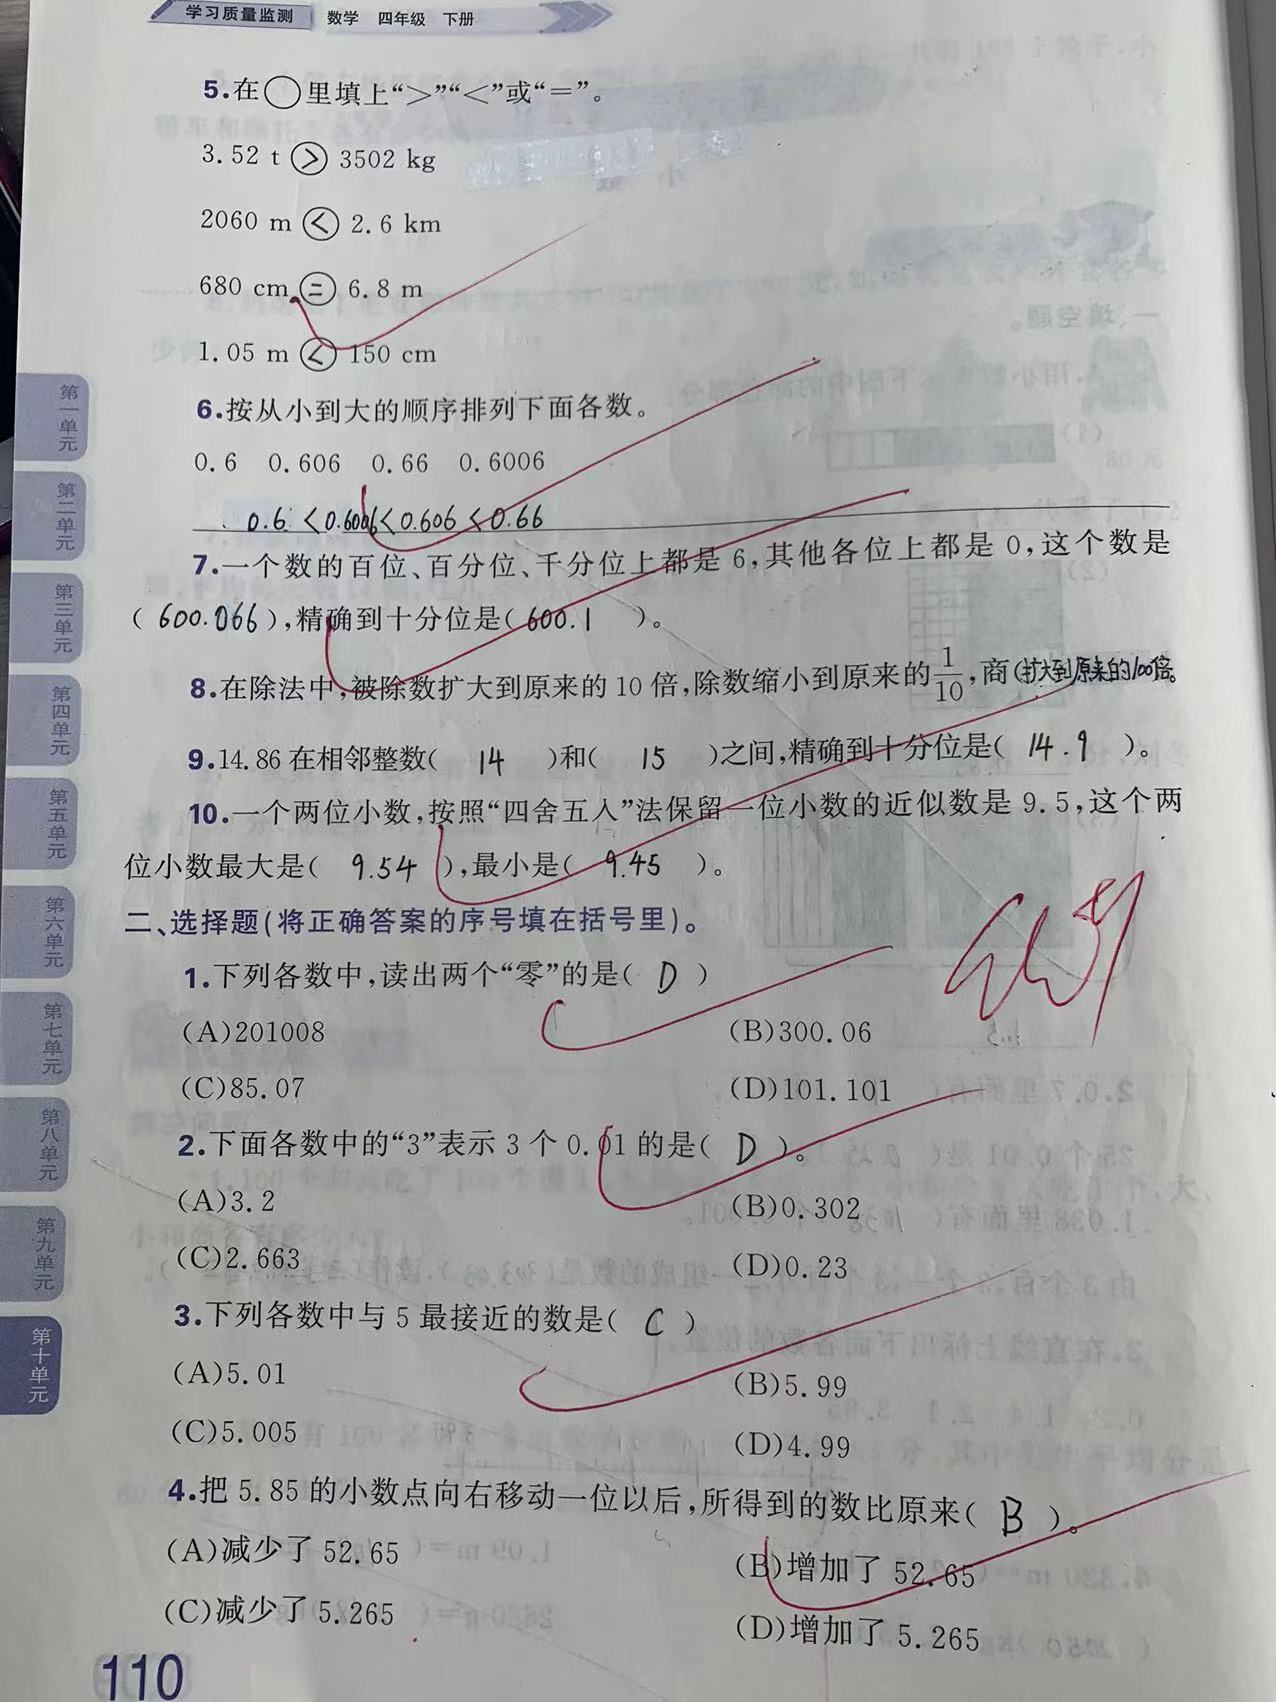 学习质量监测 数学 四年级 下册
5.在○里填上“>”“<”或“=”。
3.52 t > 3502 kg
2060 m < 2.6 km
680 cm = 6.8 m
1.05 m < 150 cm
6.按从小到大的顺序排列下面各数。
0.6 0.606 0.66 0.6006
0.6 <0.6006<0.606 <0.66
7.一个数的百位、百分位、千分位上都是6,其他各位上都是0,这个数是
(600.066),精确到十分位是(600.1)。
8.在除法中,被除数扩大到原来的10倍,除数缩小到原来的1/10,商(扩大到原来的100倍。
9.14.86在相邻整数(14)和(15)之间,精确到十分位是(14.9)。
10.一个两位小数,按照“四舍五入”法保留一位小数的近似数是9.5,这个两
位小数最大是(9.54),最小是(9.45)。
二、选择题(将正确答案的序号填在括号里)。
1.下列各数中,读出两个“零”的是(D)
(A)201008 (B)300.06
(C)85.07 (D)101.101
2.下面各数中的“3”表示3个0.01的是(D)。
(A)3.2 (B)0.302
(C)2.663 (D)0.23
3.下列各数中与5最接近的数是(C)
(A)5.01 (B)5.99
(C)5.005 (D)4.99
4.把5.85的小数点向右移动一位以后,所得到的数比原来(B)。
(A)减少了52.65 (B)增加了52.65
(C)减少了5.265 (D)增加了5.265
110
第一单元
第二单元
第三单元
第四单元
第五单元
第六单元
第七单元
第八单元
第九单元
第十单元